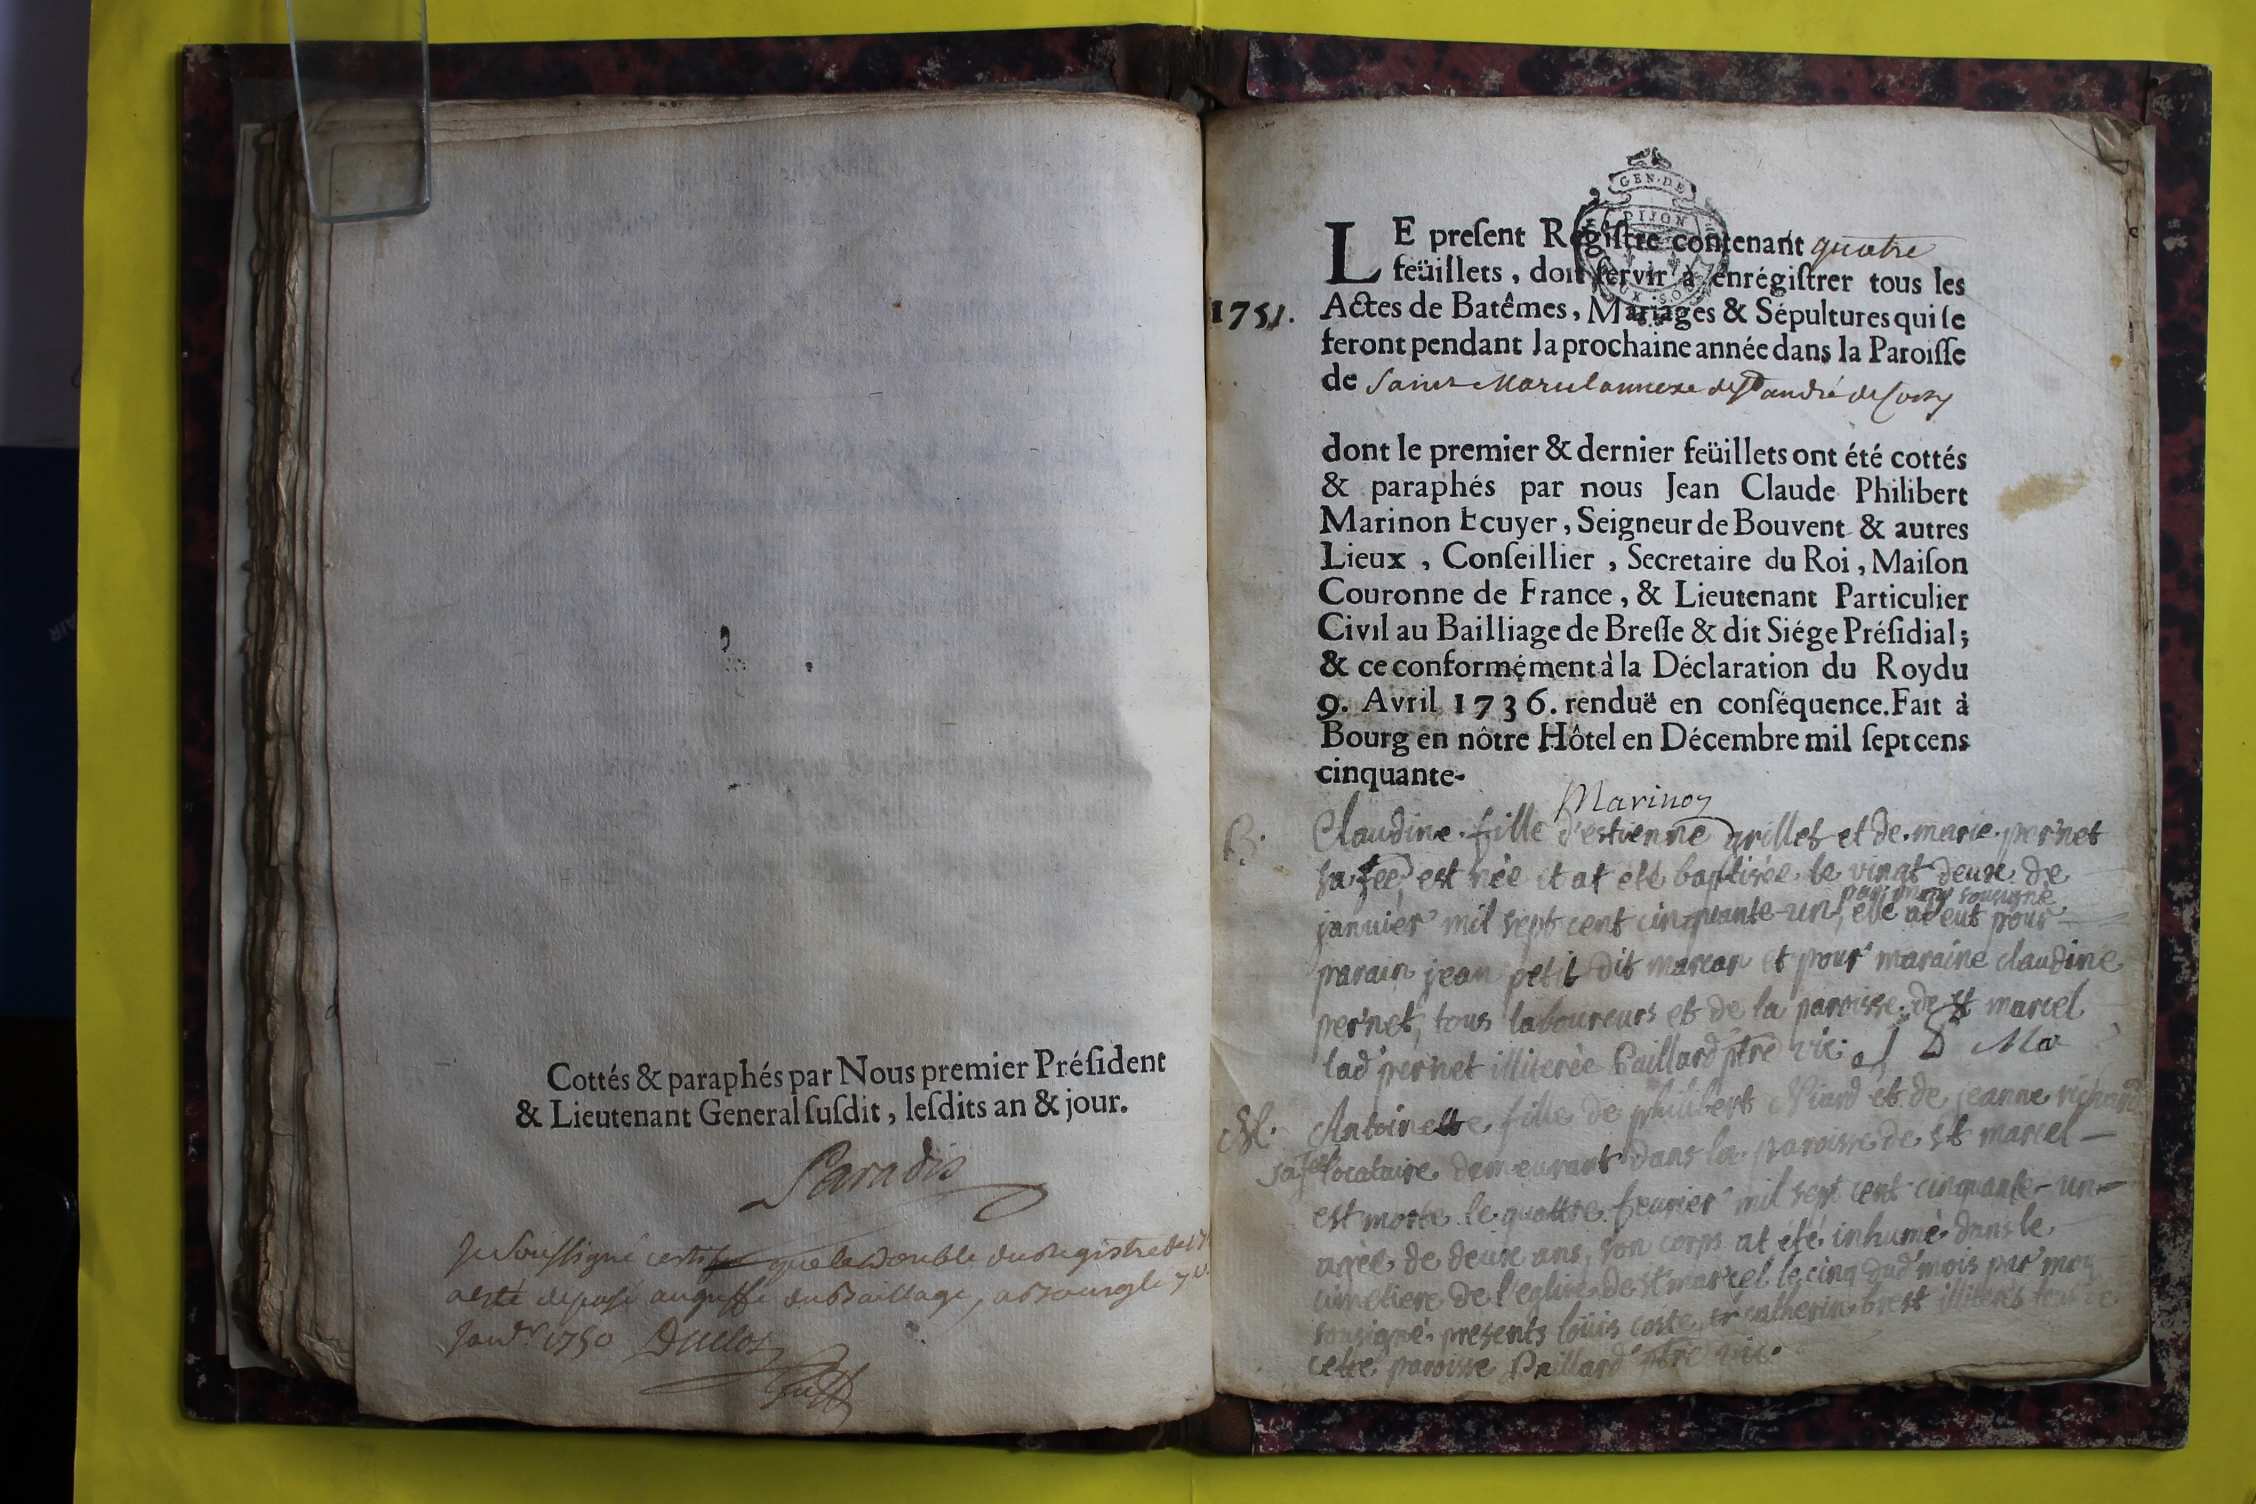 Cottés & paraphés par Nous premier Préſident
& Lieutenant General ſuſdit, leſdits an & jour.
Paradis
Je soussigné certifie que le double du Registre de
a esté deposé au greffe du Bailliage, a Bourg le
Janvr 1750 Duclos
GEN·DE
DIJON
LE preſent Regiſtre contenant quatre
feüillets, doit ſervir à enrégiſtrer tous les
1751.
Actes de Batêmes, Mariages & Sépultures qui ſe
feront pendant la prochaine année dans la Paroiſſe
de Saint Marcel annexe de St andré de Corcy
dont le premier & dernier feüillets ont été cottés
& paraphés par nous Jean Claude Philibert
Marinon Ecuyer, Seigneur de Bouvent & autres
Lieux, Conſeillier, Secretaire du Roi, Maiſon
Couronne de France, & Lieutenant Particulier
Civil au Bailliage de Breſſe & dit Siége Préſidial;
& ce conformément à la Déclaration du Roy du
9. Avril 1736. renduë en conſéquence. Fait à
Bourg en nôtre Hôtel en Décembre mil ſept cens
cinquante-
Marinon
B. Claudine fille d'estienne grillet et de marie pernet
sa fee est née et at eté baptisée le vingt deux de
par moy sousigné
janvier mil sept cent cinquante-un, elle at eut pour
parain jean petit dit marcon et pour maraine claudine
pernet, tous laboureurs et de la paroisse de st marcel
lad pernet illiterée Paillard ptre vic. J D Ma
M. Antoinette fille de philibert Piard et de jeanne richard
sa fee locataire demeurant dans la paroisse de st marcel
est morte le quattre fevrier mil sept cent cinquante-un
agée de deux ans, son corps at été inhumé dans le
cimetiere de l'eglise de st marcel le cinq dud mois par moy
sousigné presents loüis coste et catherin brest illiterés tous de
cette paroisse Paillard ptre vic.